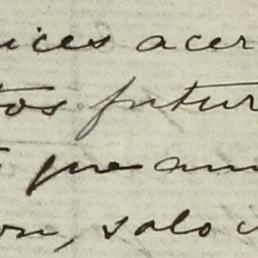 ices acer
tos futur
que aun
on, solo